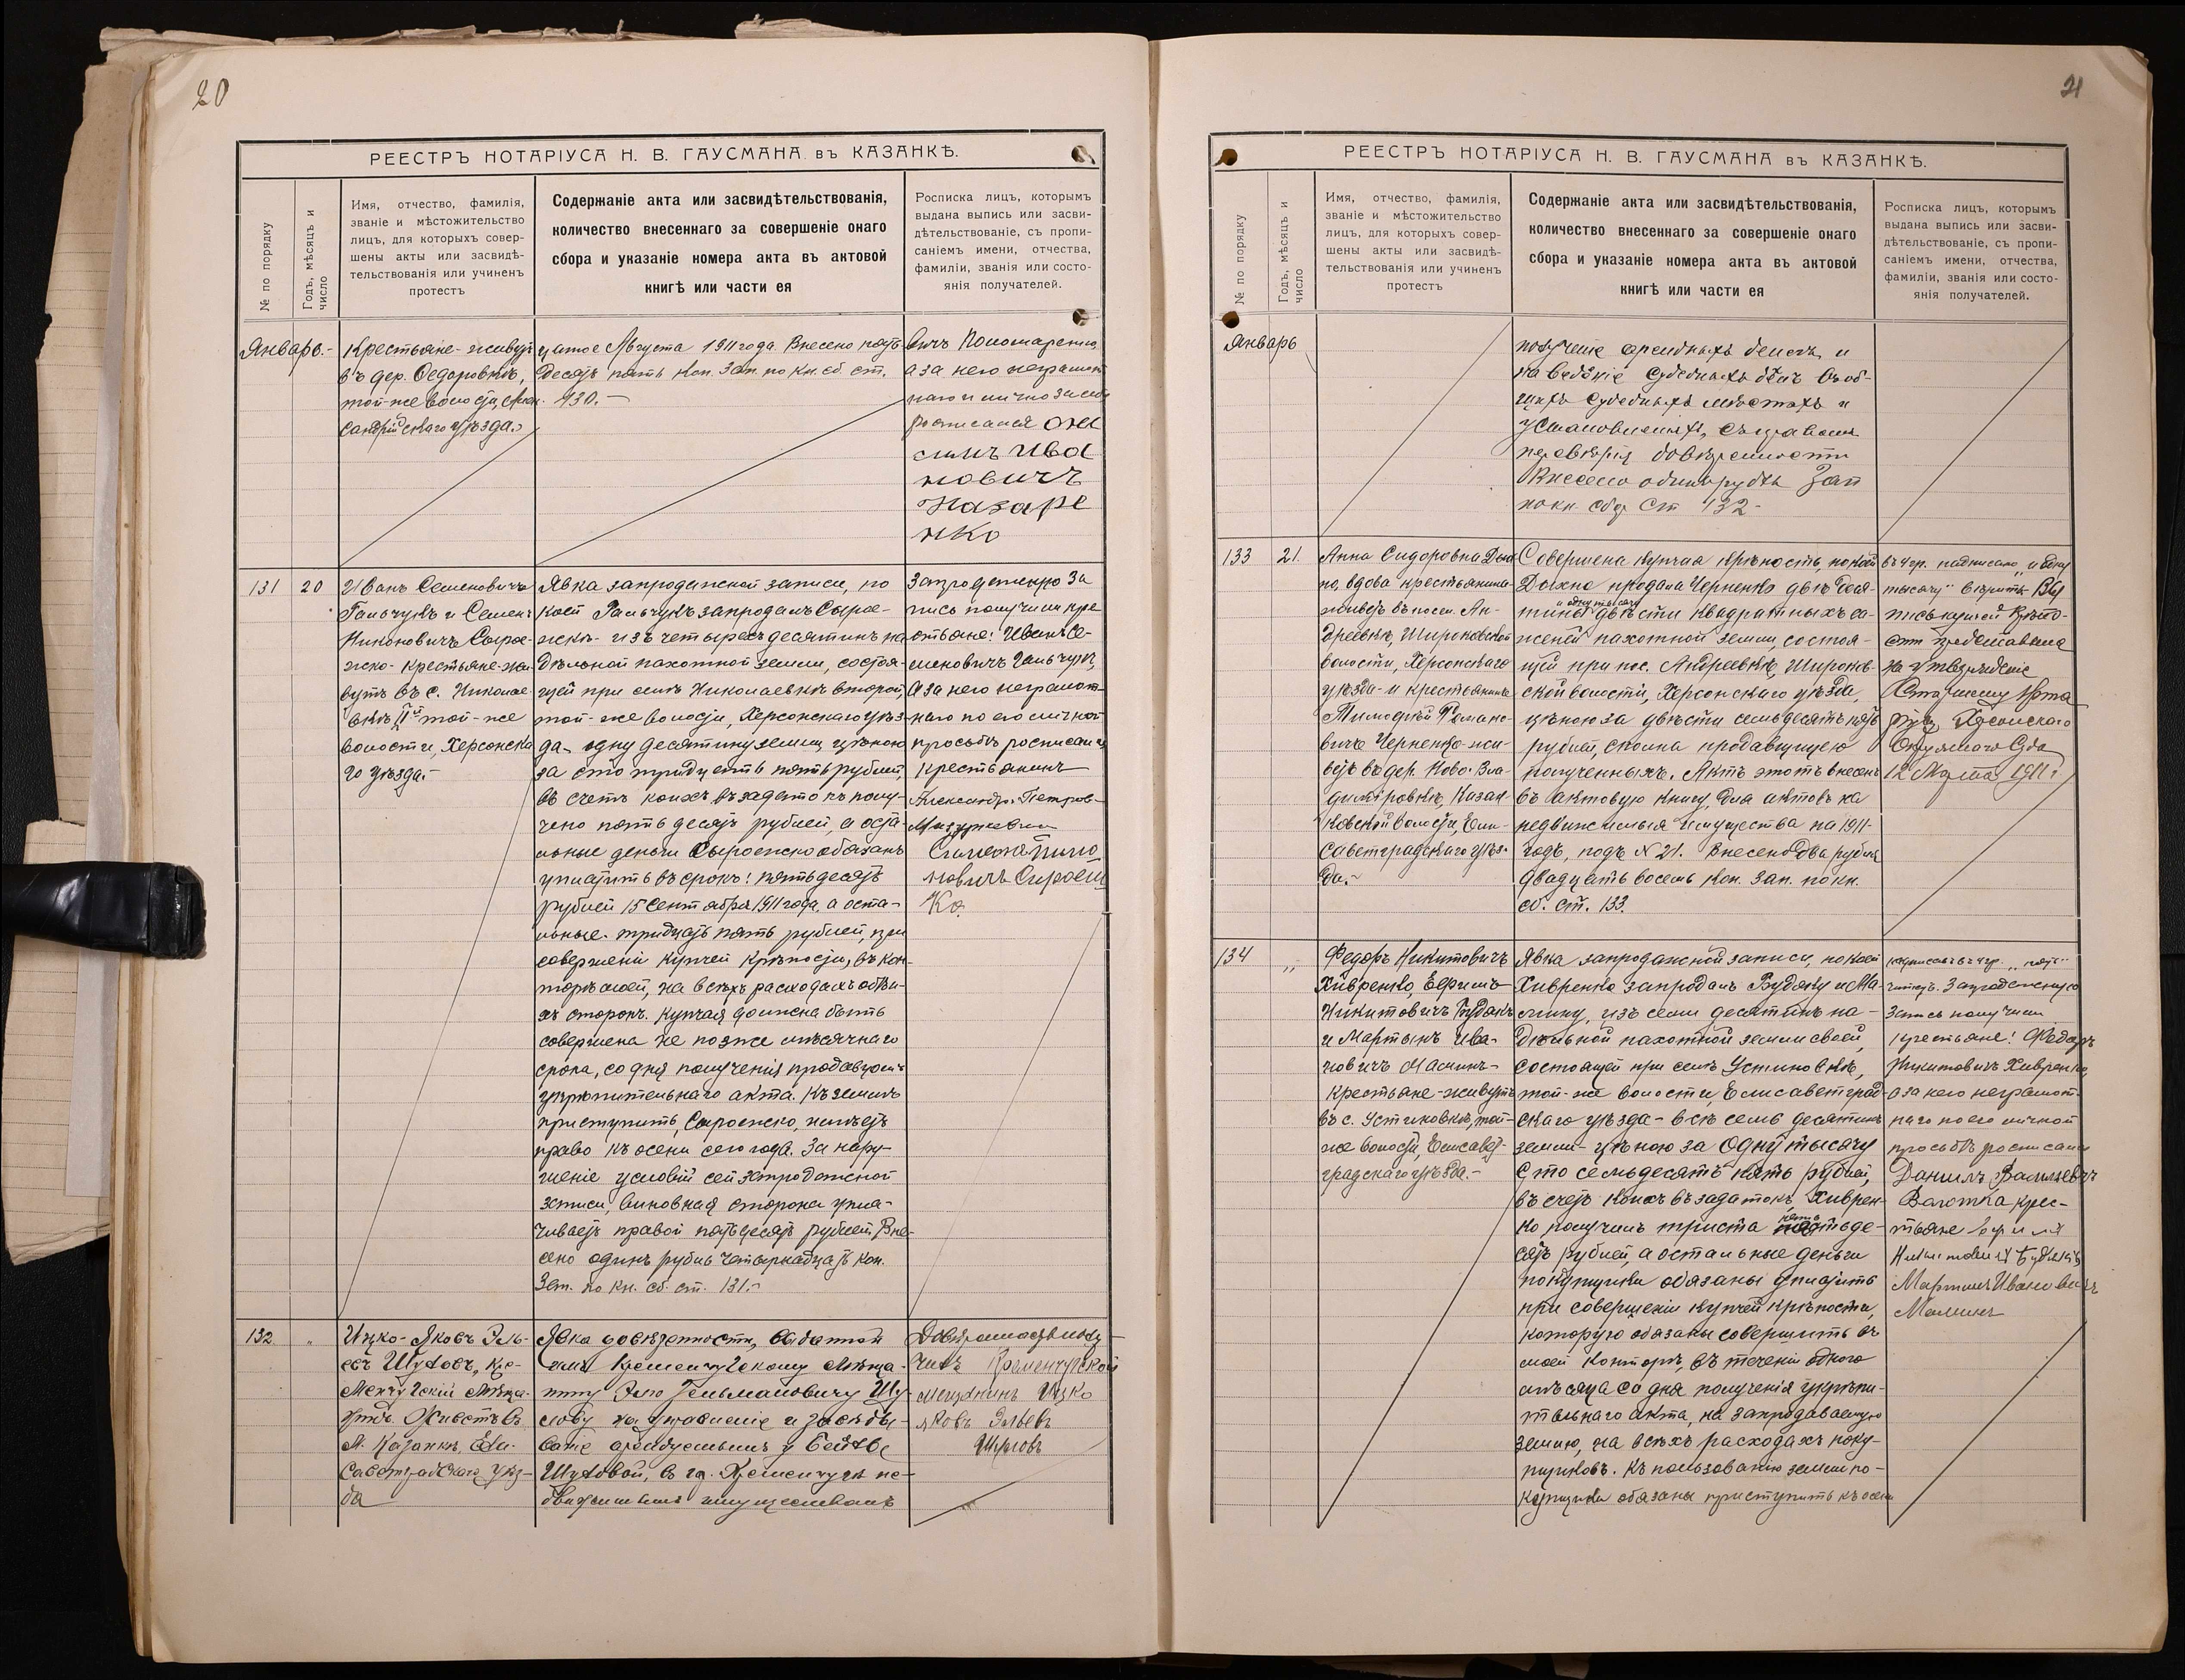 20
РЕЕСТРЪ НОТАРІУСА Н. В. ГАУСМАНА въ КАЗАНКѢ.
№ по порядку
Годъ, мѣсяцъ и
число
Имя, отчество, фамилія,
званіе и мѣстожительство
лицъ, для которыхъ совер-
шены акты или засвидѣ-
тельствованія или учиненъ
протестъ
Содержаніе акта или засвидѣтельствованія,
количество внесеннаго за совершеніе онаго
сбора и указаніе номера акта въ актовой
книгѣ или части ея
Росписка лицъ, которымъ
выдана выпись или засви-
дѣтельствованіе, съ пропи-
саніемъ имени, отчества,
фамиліи, званія или состо-
янія получателей.
Январь.-
Крестьяне-живутъ
въ дер. Федоровкѣ,
той-же волости,
уѣзда.
цатое Августа 1911 года. Внесено пять-
десятъ пять коп. Зап. по кн. сб. ст.
130.-
вичъ Пономаренко,
а за него неграмот
наго и лично за себя
росписался
Ива
новичъ
Назаре
нко
131
20
Иванъ Семеновичъ
Гальчукъ и Семенъ
Никоновичъ Сырое-
жко-крестьяне-жи
вутъ въ с. Николае-
вкѣ IIй той-же
волости, Херсонска
го уѣзда.-
Явка запродажной записи, по
коей Гальчукъ запродалъ Сырое-
жкѣ-изъ четырехъ десятинъ на
дѣльной пахотной земли, состоя-
щей при селѣ Николаевкѣ второй,
той-же волости, Херсонскаго уѣз-
да-одну десятину земли цѣною
за сто тридцать пять рублей,
въ счетъ коихъ въ задатокъ полу-
чено пятьдесятъ рублей, а оста-
льные деньги Сыроежко обязанъ
уплатить въ срокъ: пятьдесятъ
рублей 15 Сентября 1911 года, а оста-
льные тридцать пять рублей, при
совершеніи купчей крѣпости, въ кон-
торѣ моей, на всѣхъ расходахъ обѣи-
хъ сторонъ. Купчая должна быть
совершена не позже мѣсячнаго
срока, со дня полученія продавцомъ
укрѣпительнаго акта. Къ землѣ
приступить, Сыроежко, имѣетъ
право къ осени сего года. За нару-
шеніе условій сей запродажной
записи, виновная сторона упла-
чиваетъ правой пятьдесятъ рублей. Вне-
сено одинъ рубль четырнадцать коп.
Зап. по кн. сб. ст. 131.-
Запродажную за
пись получили кре-
стьяне: Иванъ Се-
меновичъ Гальчукъ,
а за него неграмот-
наго по его личной
просьбѣ росписался
крестьянинъ
Александръ Петров.
132
"
Ицко-Яковъ Эль-
евъ Шуховъ, Кре-
менчугскій мѣща-
нинъ. Живетъ въ
м. Казанкѣ, Ели-
саветградскаго уѣз-
да
Явка довѣренности, выданной
имъ Кременчугскому мѣща-
нину Элю Гельмановичу Шу-
хову на управленіе и завѣды-
ваніе арендуемымъ у Бейлы
Шуховой, въ гор. Кременчугѣ не-
движимымъ имуществомъ
Довѣренность полу-
чилъ Кременчугскій
мещанинъ Ицко
Яковъ Эльевъ
Шуховъ
21
РЕЕСТРЪ НОТАРІУСА Н. В. ГАУСМАНА въ КАЗАНКѢ.
№ по порядку
Годъ, мѣсяцъ и
число
Имя, отчество, фамилія,
званіе и мѣстожительство
лицъ, для которыхъ совер-
шены акты или засвидѣ-
тельствованія или учиненъ
протестъ
Содержаніе акта или засвидѣтельствованія,
количество внесеннаго за совершеніе онаго
сбора и указаніе номера акта въ актовой
книгѣ или части ея
Росписка лицъ, которымъ
выдана выпись или засви-
дѣтельствованіе, съ пропи-
саніемъ имени, отчества,
фамиліи, званія или состо-
янія получателей.
Январь
полученіе арендныхъ денегъ и
на веденіе судебныхъ дѣлъ въ об-
щихъ судебныхъ мѣстахъ и
установленіяхъ, съ правомъ
передовѣрія довѣренности
Внесено одинъ рубль Зап
по кн сбор. ст 132-
133
21.
Анна Сидоровна Дых
но, вдова крестьянина
живетъ въ посел. Ан-
дреевкѣ, Широковской
волости, Херсонскаго
уѣзда-и крестьянинъ
Тимофей Романо-
вичъ Черненко-жи-
ветъ въ дер. Ново-Вла-
диміровкѣ, Казан-
ковской волости, Ели-
саветградскаго уѣз-
да.-
Совершена купчая крѣпость, по коей
Дыхно продала Черненко двѣ деся-
тины и одну тысячу двѣсти квадратныхъ са-
женей пахотной земли, состоя-
щей при пос. Андреевкѣ, Широков-
ской волости, Херсонскаго уѣзда,
цѣною за двѣсти семьдесятъ пять
рублей, сполна продавщицею
полученныхъ. Актъ этотъ внесенъ
въ актовую книгу, для актовъ на
недвижимыя имущества на 1911-
годъ, подъ № 21. Внесено два рубля
двадцать восемь коп. Зап. по кн.
сб. ст. 133.
въ 4 гр. надписано "и одну
тысячу" вѣрить. Вы
пись купчей крѣпо-
сти представлена
на утвержденіе
Старшему Нота
ріусу Херсонскаго
Окружного Суда
12 Марта 1911 г.
134
"
Федоръ Никитовичъ
Хивренко, Ефимъ
Никитовичъ Будякъ
и Мартынъ Ива-
новичъ Малинъ-
крестьяне-живутъ
въ с. Устиновкѣ, той-
же волости, Елисавет-
градскаго уѣзда.-
Явка запродажной записи, по коей
Хивренко запродалъ Будяку и Ма-
лину, изъ семи десятинъ на-
дѣльной пахотной земли своей,
состоящей при селѣ Устиновкѣ,
той-же волости, Елисаветград-
скаго уѣзда-всѣ семь десятинъ
земли-цѣною за одну тысячу
сто семьдесятъ пять рублей,
въ счетъ коихъ въ задатокъ Хиврен-
ко получилъ триста пятьде-
сятъ рублей, а остальные деньги
покупщики обязаны уплатить
при совершеніи купчей крѣпости,
которую обязаны совершить въ
моей конторѣ, въ теченіи одного
мѣсяца со дня полученія укрѣпи-
тельнаго акта, на запродаваемую
землю, на всѣхъ расходахъ поку-
пщиковъ. Къ пользованію землею по-
купщики обязаны приступить къ осени
Запродажную
запись получили
крестьяне: Федоръ
Никитовичъ Хивренко,
а за него неграмот-
наго по его личной
просьбѣ росписался
Данилъ Васильевичъ
крес-
тьяне
Мартинъ Ивановичъ
Малинъ